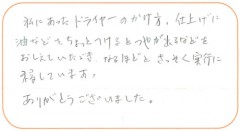 私にあったドライヤーのかけ方、仕上げに
油などをちょっとつけるとつやが出るなどを
おしえていただき、なるほどと さっそく実行に
移しています。
ありがとうございました。